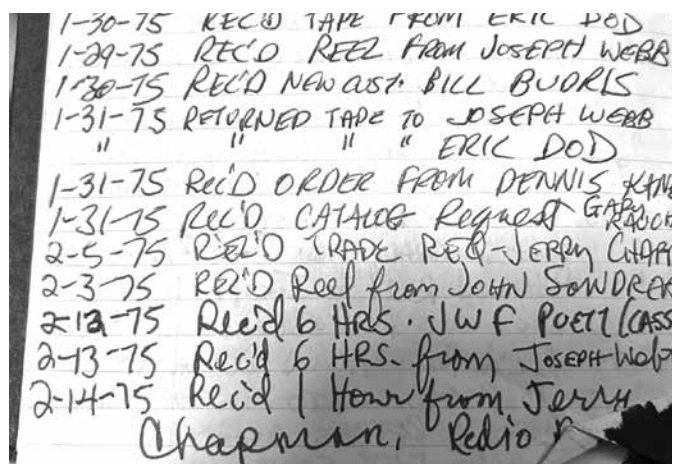 1-30-75 REC'D TAPE FROM ERIC DOD
1-29-75 REC'D REEL FROM JOSEPH WEBB
1-30-75 REC'D NEW CUST. BILL BUDRIS
1-31-75 RETURNED TAPE TO JOSEPH WEBB
" " " " ERIC DOD
1-31-75 REC'D ORDER FROM DENNIS
1-31-75 REC'D CATALOG Request GARY
2-5-75 REC'D TRADE REQ-JERRY CHAP
2-3-75 REC'D Reel from JOHN
2-12-75 Rec'd 6 HRS. JWF (CASS
2-13-75 Rec'd 6 HRS. from JOSEPH Web
2-14-75 Rec'd 1 Hour from Jerry
Chapman, Redio